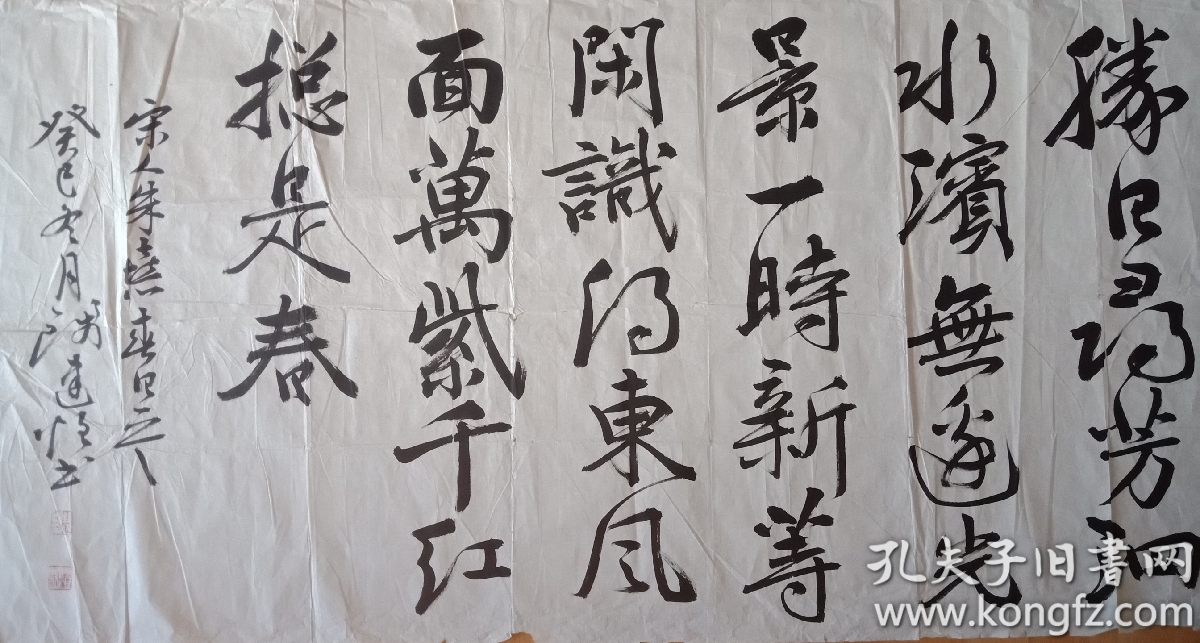 勝日尋芳泗
水濱無邊光
景一時新等
閑識得東風
面萬紫千紅
揔是春
宋人朱熹春日之一
癸巳冬月 建 书
孔夫子旧书网
www.kongfz.com